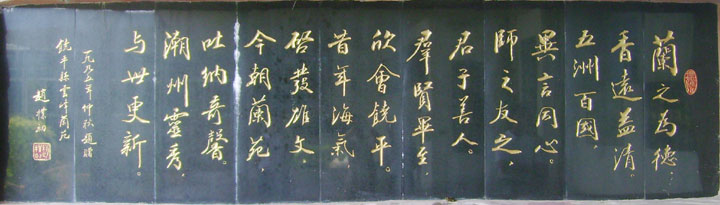 蘭之為德：
香遠益清。
五洲百國，
異言同心。
師之友之，
君子善人。
羣賢畢至，
欣會饒平。
昔年海氣，
啓發雄文，
今朝蘭苑，
吐納奇馨。
潮州靈秀，
与世更新。
一九九五年仲秋題贈
饒平縣雲峰蘭苑
趙樸初